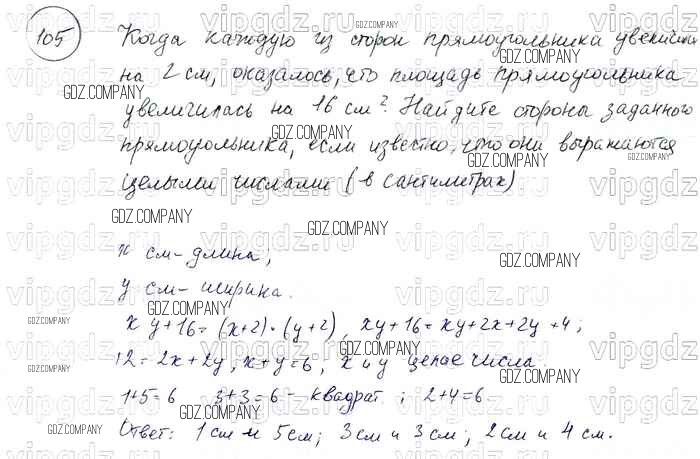 105 Когда каждую из сторон прямоугольника увеличили
на 2 см, оказалось, что площадь прямоугольника
увеличилась на 16 см². Найдите стороны заданного
прямоугольника, если известно, что они выражаются
целыми числами (в сантиметрах).
x см - длина;
y см - ширина.
xy+16=(x+2)·(y+2), xy+16=xy+2x+2y+4;
12=2x+2y, x+y=6, x и y целые числа
1+5=6 3+3=6 - квадрат; 2+4=6
Ответ: 1 см и 5 см; 3 см и 3 см; 2 см и 4 см.
vipgdz.ru
GDZ.COMPANY